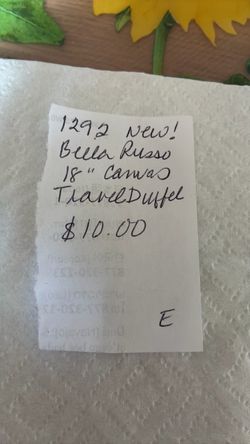 1292 New!
Bella Russo
18" Canvas
Travel Duffel
$10.00
E